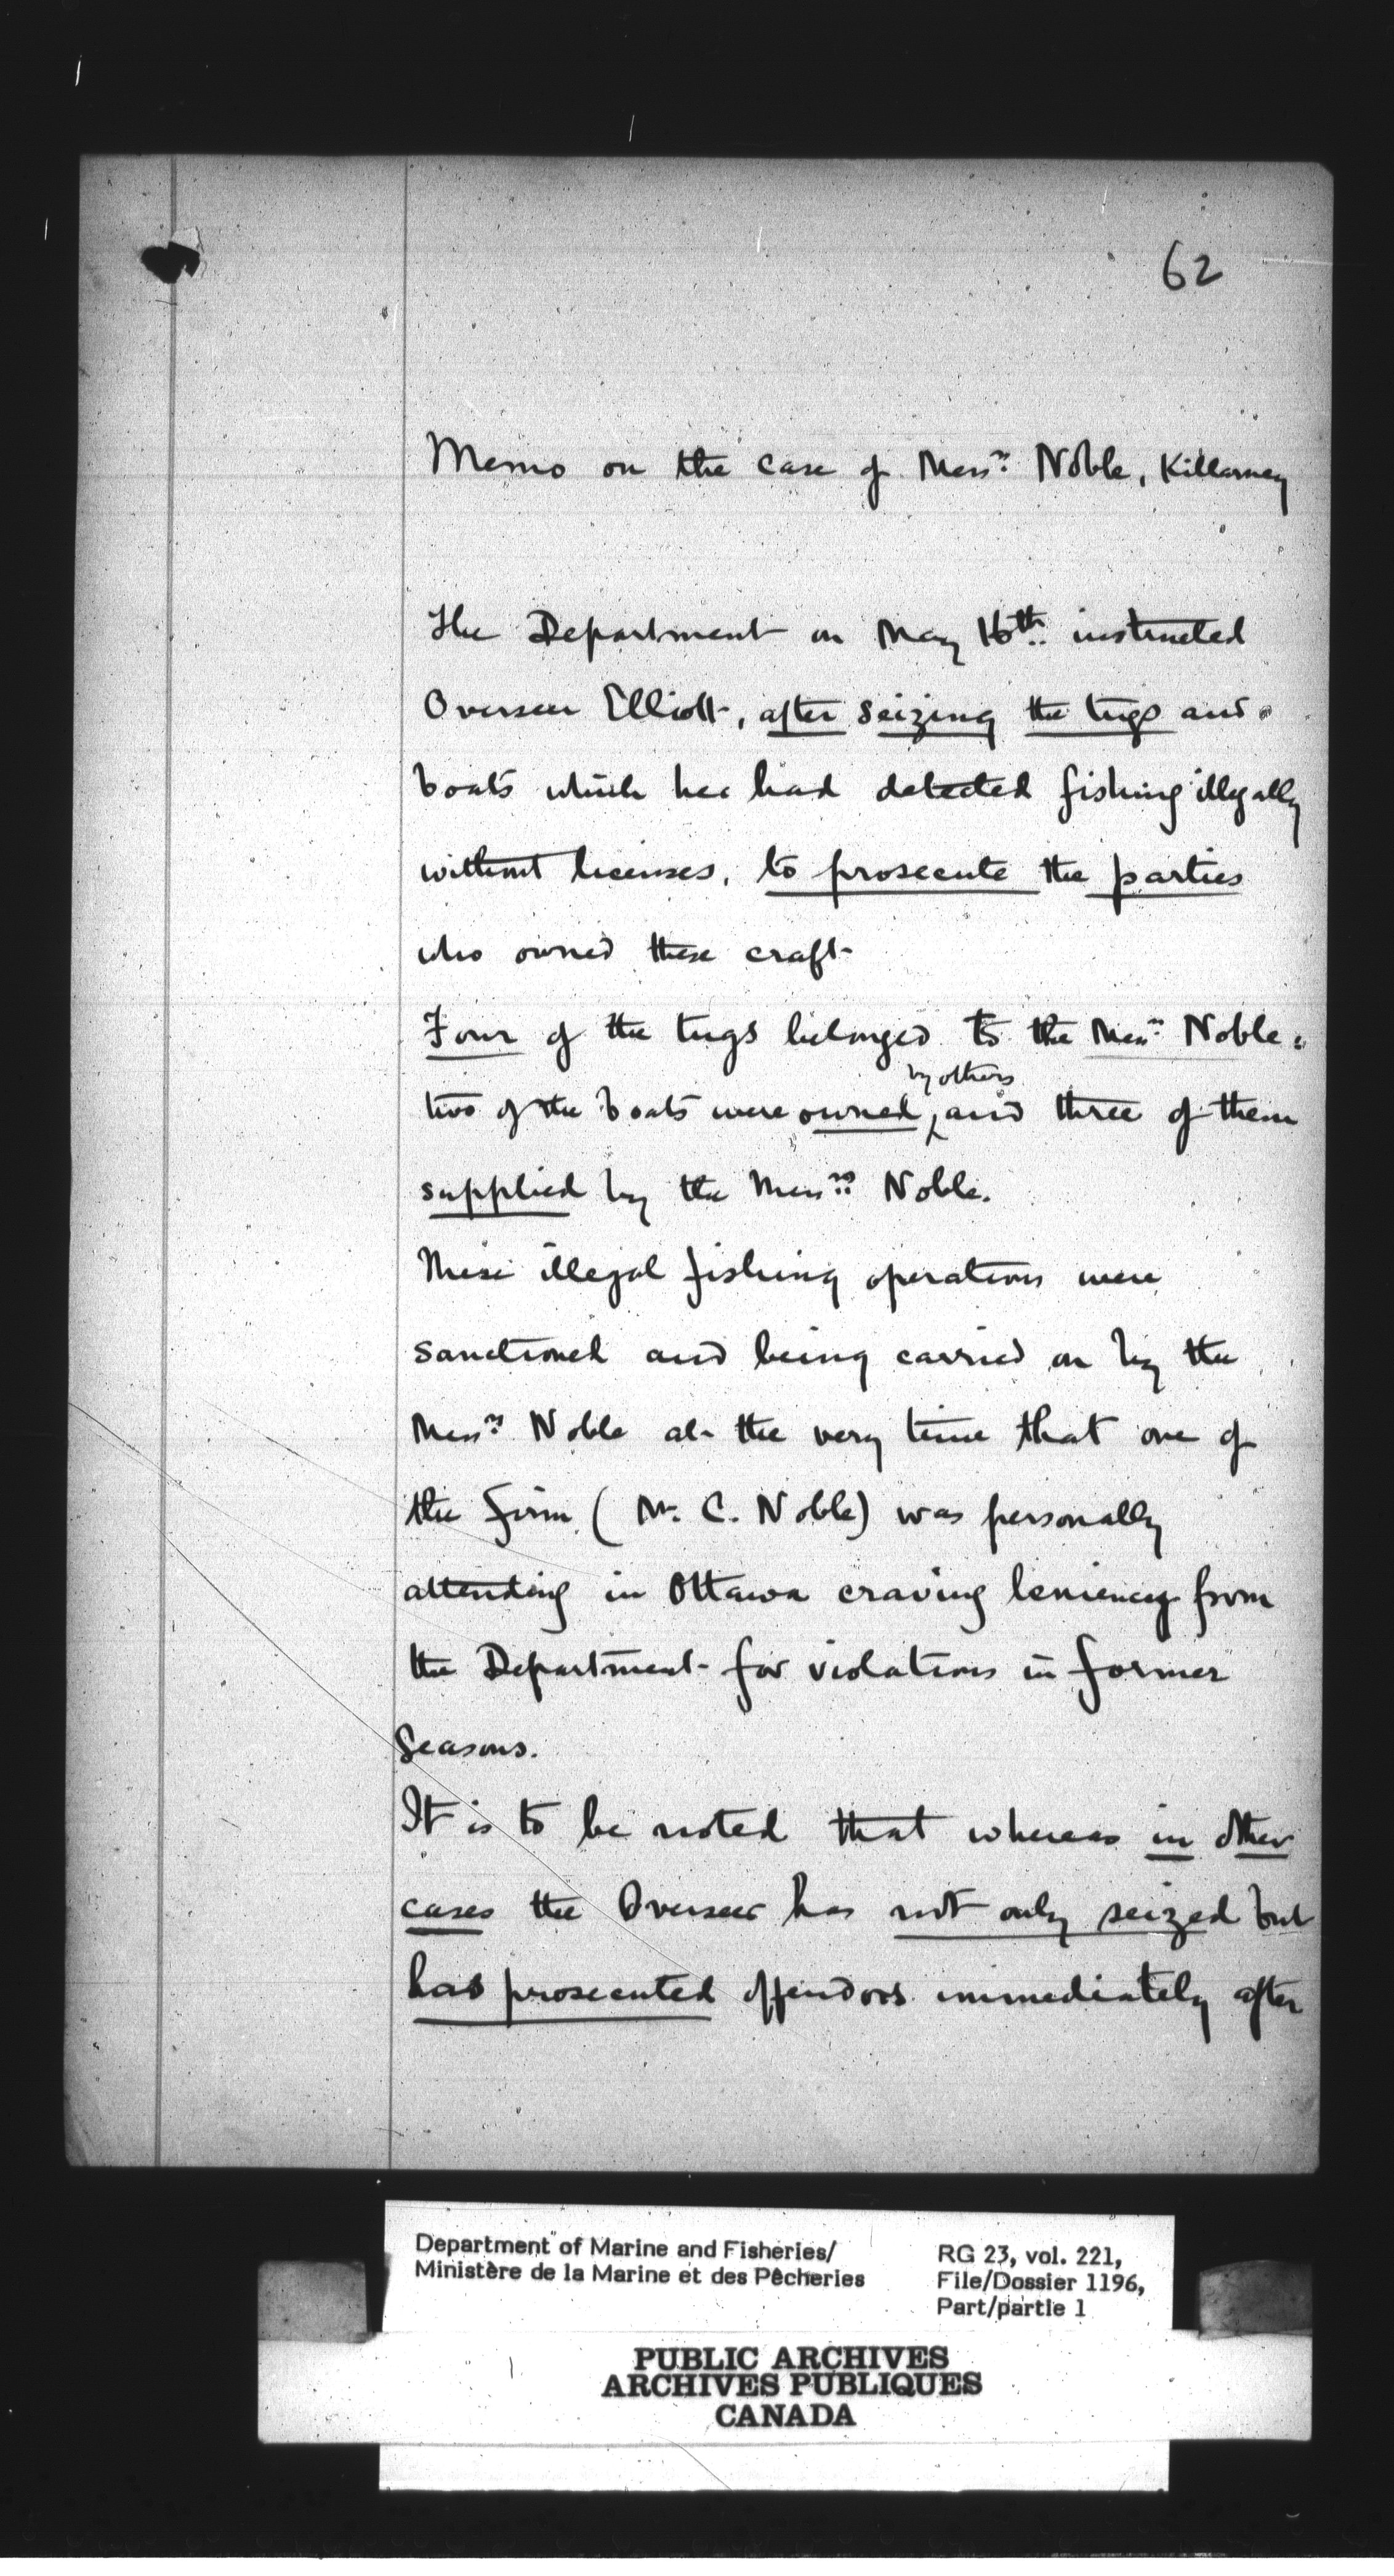 62
Memo on the case of Messrs. Noble, Killarney
The Department on May 16th instructed
Overseer Elliott, after seizing the tugs and
boats which he had detected fishing illegally
without licenses, to prosecute the parties
who owned these craft
Four of the tugs belonged to the Messrs Noble.
by others
two of the boats were owned, and three of them
supplied by the Messrs. Noble.
These illegal fishing operations were
sanctioned and being carried on by the
Messrs Noble at the very time that one of
the firm (Mr. C. Noble) was personally
attending in Ottawa craving leniency from
the Department for violations in former
Seasons.
It is to be noted that whereas in other
cases the Overseer has not only seized but
has prosecuted offendors immediately after
Department of Marine and Fisheries/
Ministère de la Marine et des Pêcheries
RG 23, vol. 221,
File/Dossier 1196,
Part/partie 1
PUBLIC ARCHIVES
ARCHIVES PUBLIQUES
CANADA